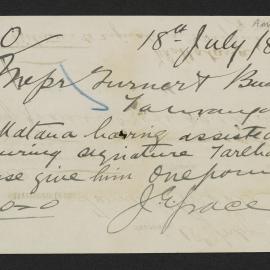 18th July 18
Messrs Turner & Bu
Tauranga
Matana having assisted
uring signature
se give him One poun
0-0 J Grace